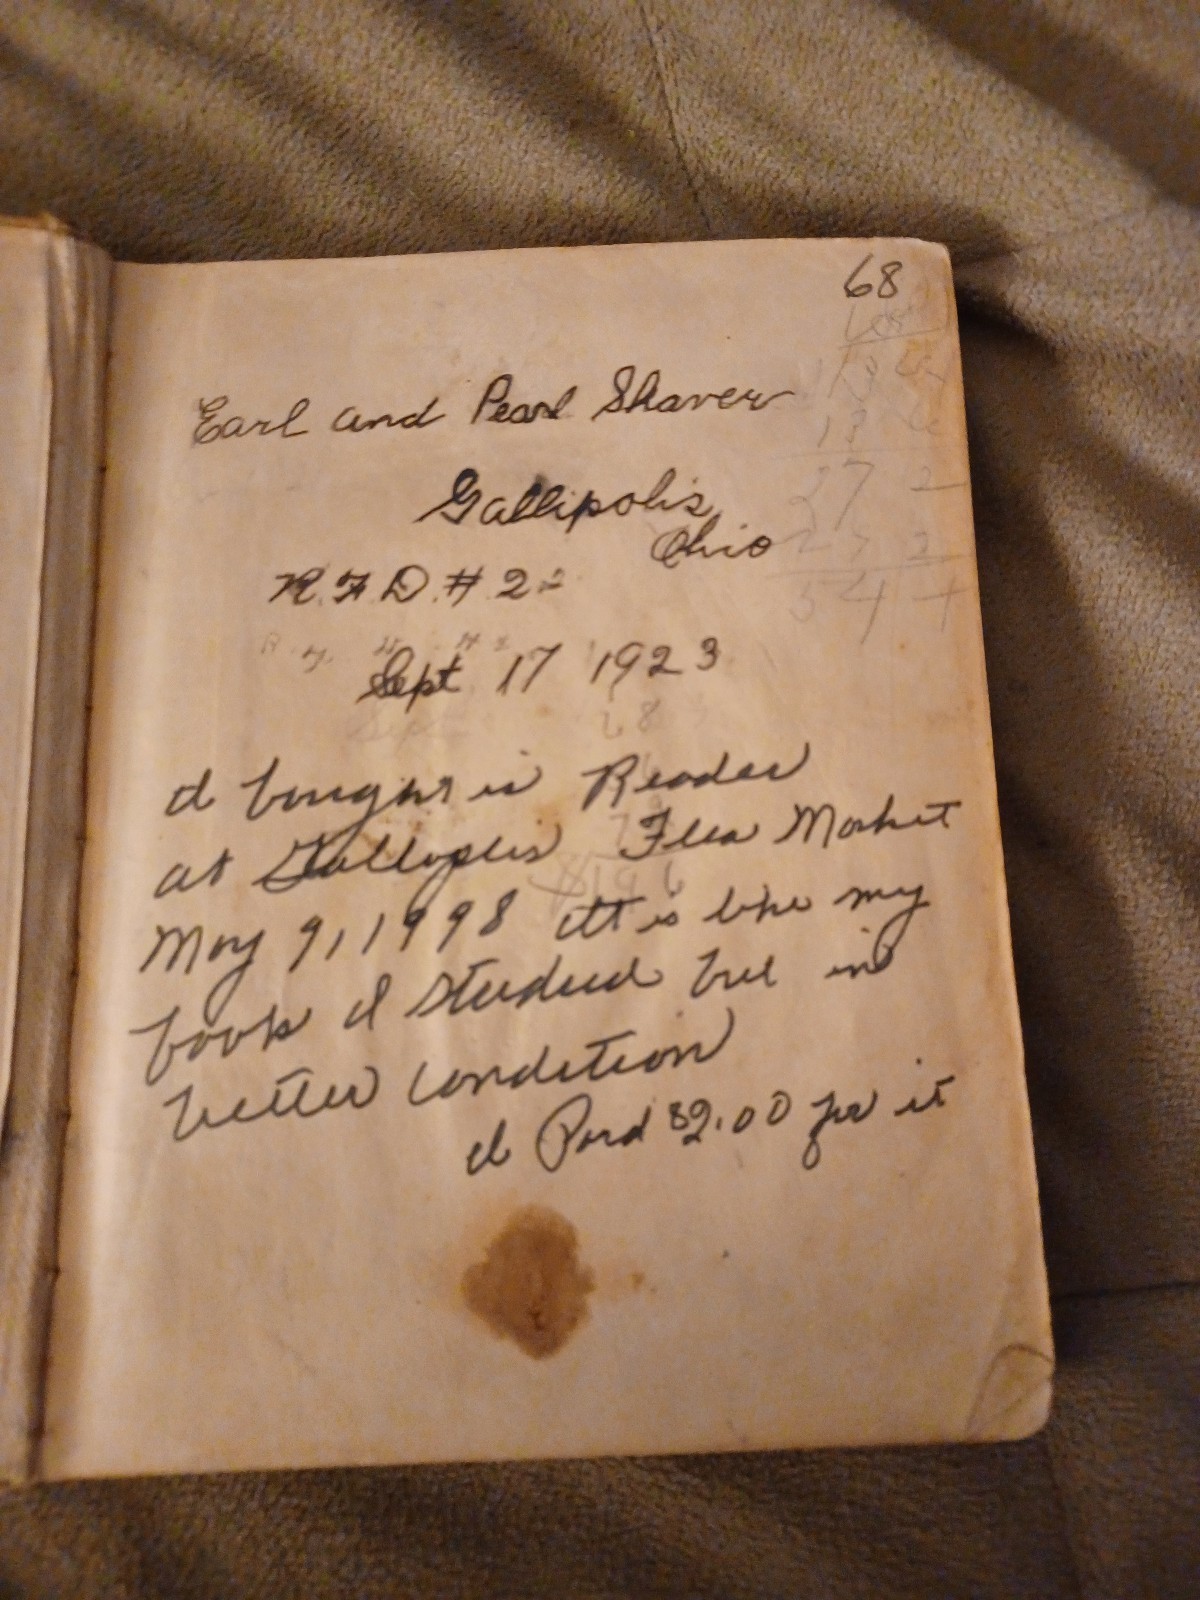 68
Earl and Pearl Shaver
Gallipolis,
Ohio
R.F.D.# 2
R. F. D. # 2
Sept 17 1923
Sept
68
27 2
27 2
54 4
I bought Reader
at Gallopolis Flea Market
May 9, 1998 It is like my
book I studied but in
better condition
I Paid $2.00 for it